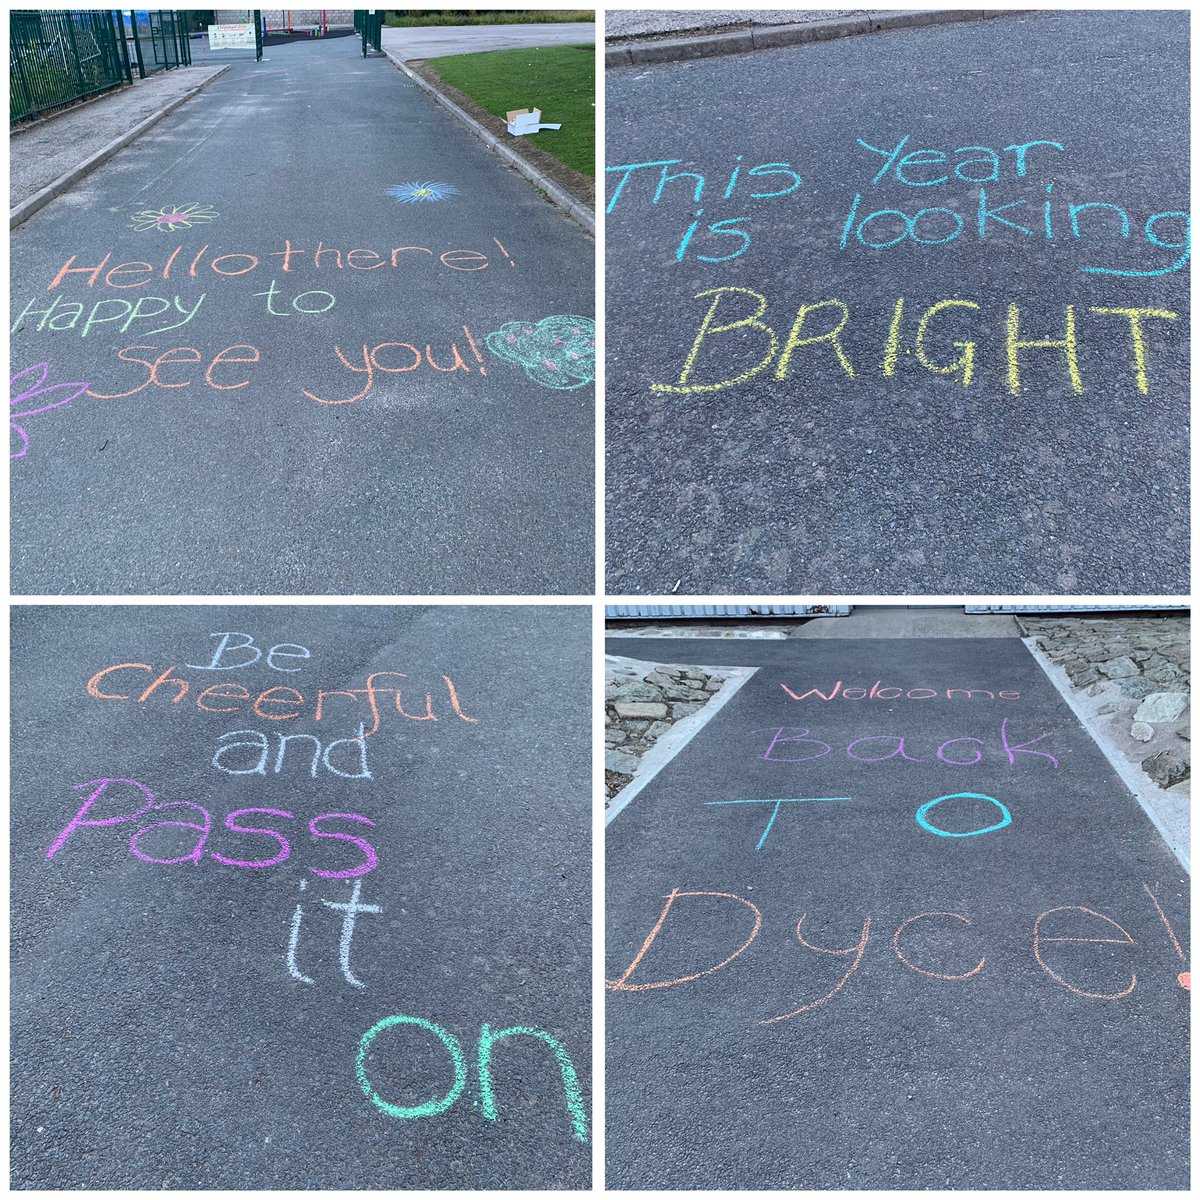 Hello there!
Happy to
see you!
This Year
is looking
BRIGHT
Be
Cheerful
and
Pass
it
on
Welcome
Back
To
Dyce!